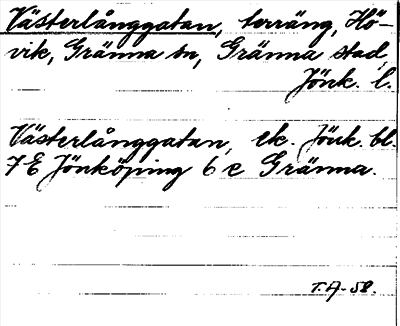 Västerlånggatan, terräng, Hö-
vik, Gränna sn, Gränna stad,
Jönk. l.
Västerlånggatan, ek. Jönk. bl.
7 E Jönköping 6 c Gränna.
T.A-58.